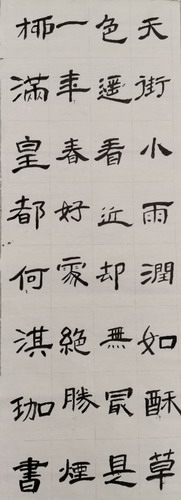 天街小雨潤如酥草
色遥看近却無最是
一年春好處絶勝煙
柳滿皇都何淇珈書